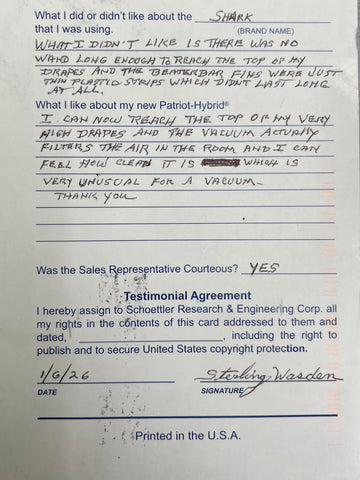 What I did or didn't like about the SHARK
that I was using. (BRAND NAME)
WHAT I DIDN'T LIKE IS THERE WAS NO
WAND LONG ENOUGH TO REACH THE TOP OF MY
DRAPES AND THE BEATERBAR FINS WERE JUST
THIN PLASTIC STRIPS WHICH DIDN'T LAST LONG
AT ALL.
What I like about my new Patriot-Hybrid®
I CAN NOW REACH THE TOP OF MY VERY
HIGH DRAPES AND THE VACUUM ACTUALLY
FILTERS THE AIR IN THE ROOM AND I CAN
FEEL HOW CLEAN IT IS WHICH IS
VERY UNUSUAL FOR A VACUUM.
THANK YOU
Was the Sales Representative Courteous? YES
Testimonial Agreement
I hereby assign to Schoettler Research & Engineering Corp. all
my rights in the contents of this card addressed to them and
dated, , including the right to
publish and to secure United States copyright protection.
1/6/26 Sterling Wasden
DATE SIGNATURE
Printed in the U.S.A.